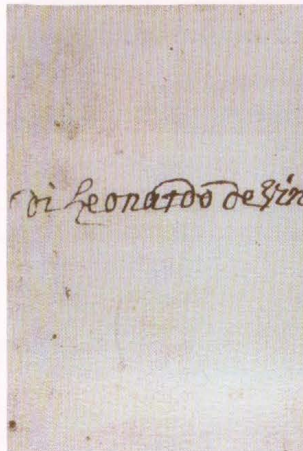 di Leonardo de Vin